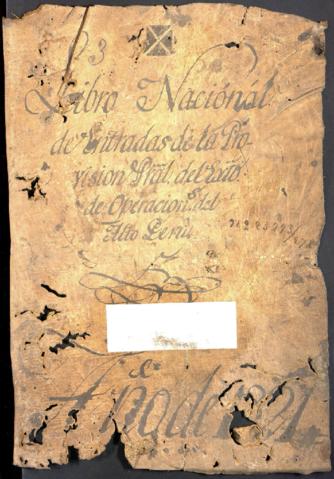 3
Libro Nacionál
de Entradas de la Pro-
vision Gräl. del Exto
de Operacion.s del
Alto Perú
el
Año de 1821